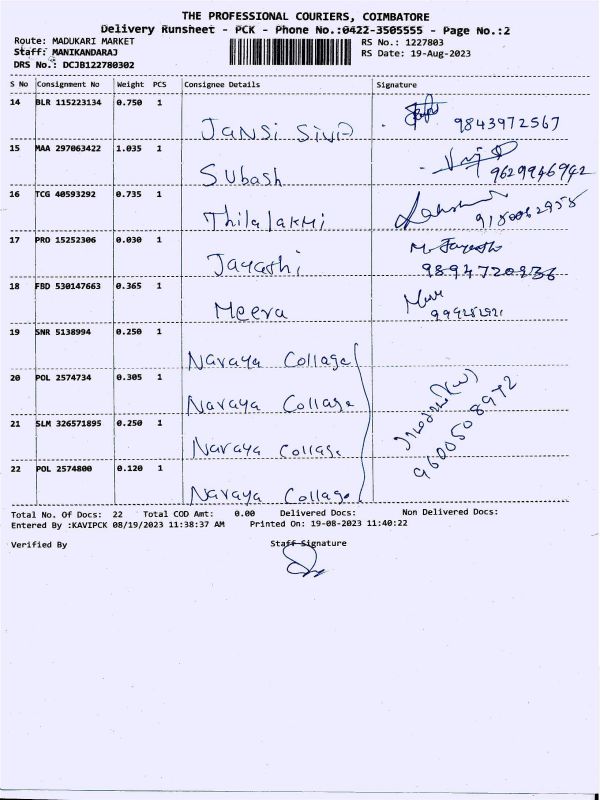 THE PROFESSIONAL COURIERS, COIMBATORE
Delivery Runsheet - PCK - Phone No.:0422-3505555 - Page No.:2
Route: MADUKARI MARKET
RS No.: 1227803
Staff: MANIKANDARAJ
RS Date: 19-Aug-2023
DRS No.: DCJB122780302
S No Consignment No Weight PCS Consignee Details Signature
14 BLR 115223134 0.750 1
Jansi Siva 9843972567
15 MAA 297063422 1.035 1
Subash 9629946942
16 TCG 40593292 0.735 1
Thilalakmi 9180062958
17 PRO 15252306 0.030 1 M. Jayashi
Jayashi
18 FBD 530147663 0.365 1
Meera
19 SNR 5138994 0.250 1
Naraya Collage
20 POL 2574734 0.305 1
Naraya Collage
21 SLM 326571895 0.250 1
Naraya Collage 9600508972
22 POL 2574800 0.120 1
Naraya Collage
Total No. Of Docs: 22 Total COD Amt: 0.00 Delivered Docs: Non Delivered Docs:
Entered By :KAVIPCK 08/19/2023 11:38:37 AM Printed On: 19-08-2023 11:40:22
Verified By Staff Signature